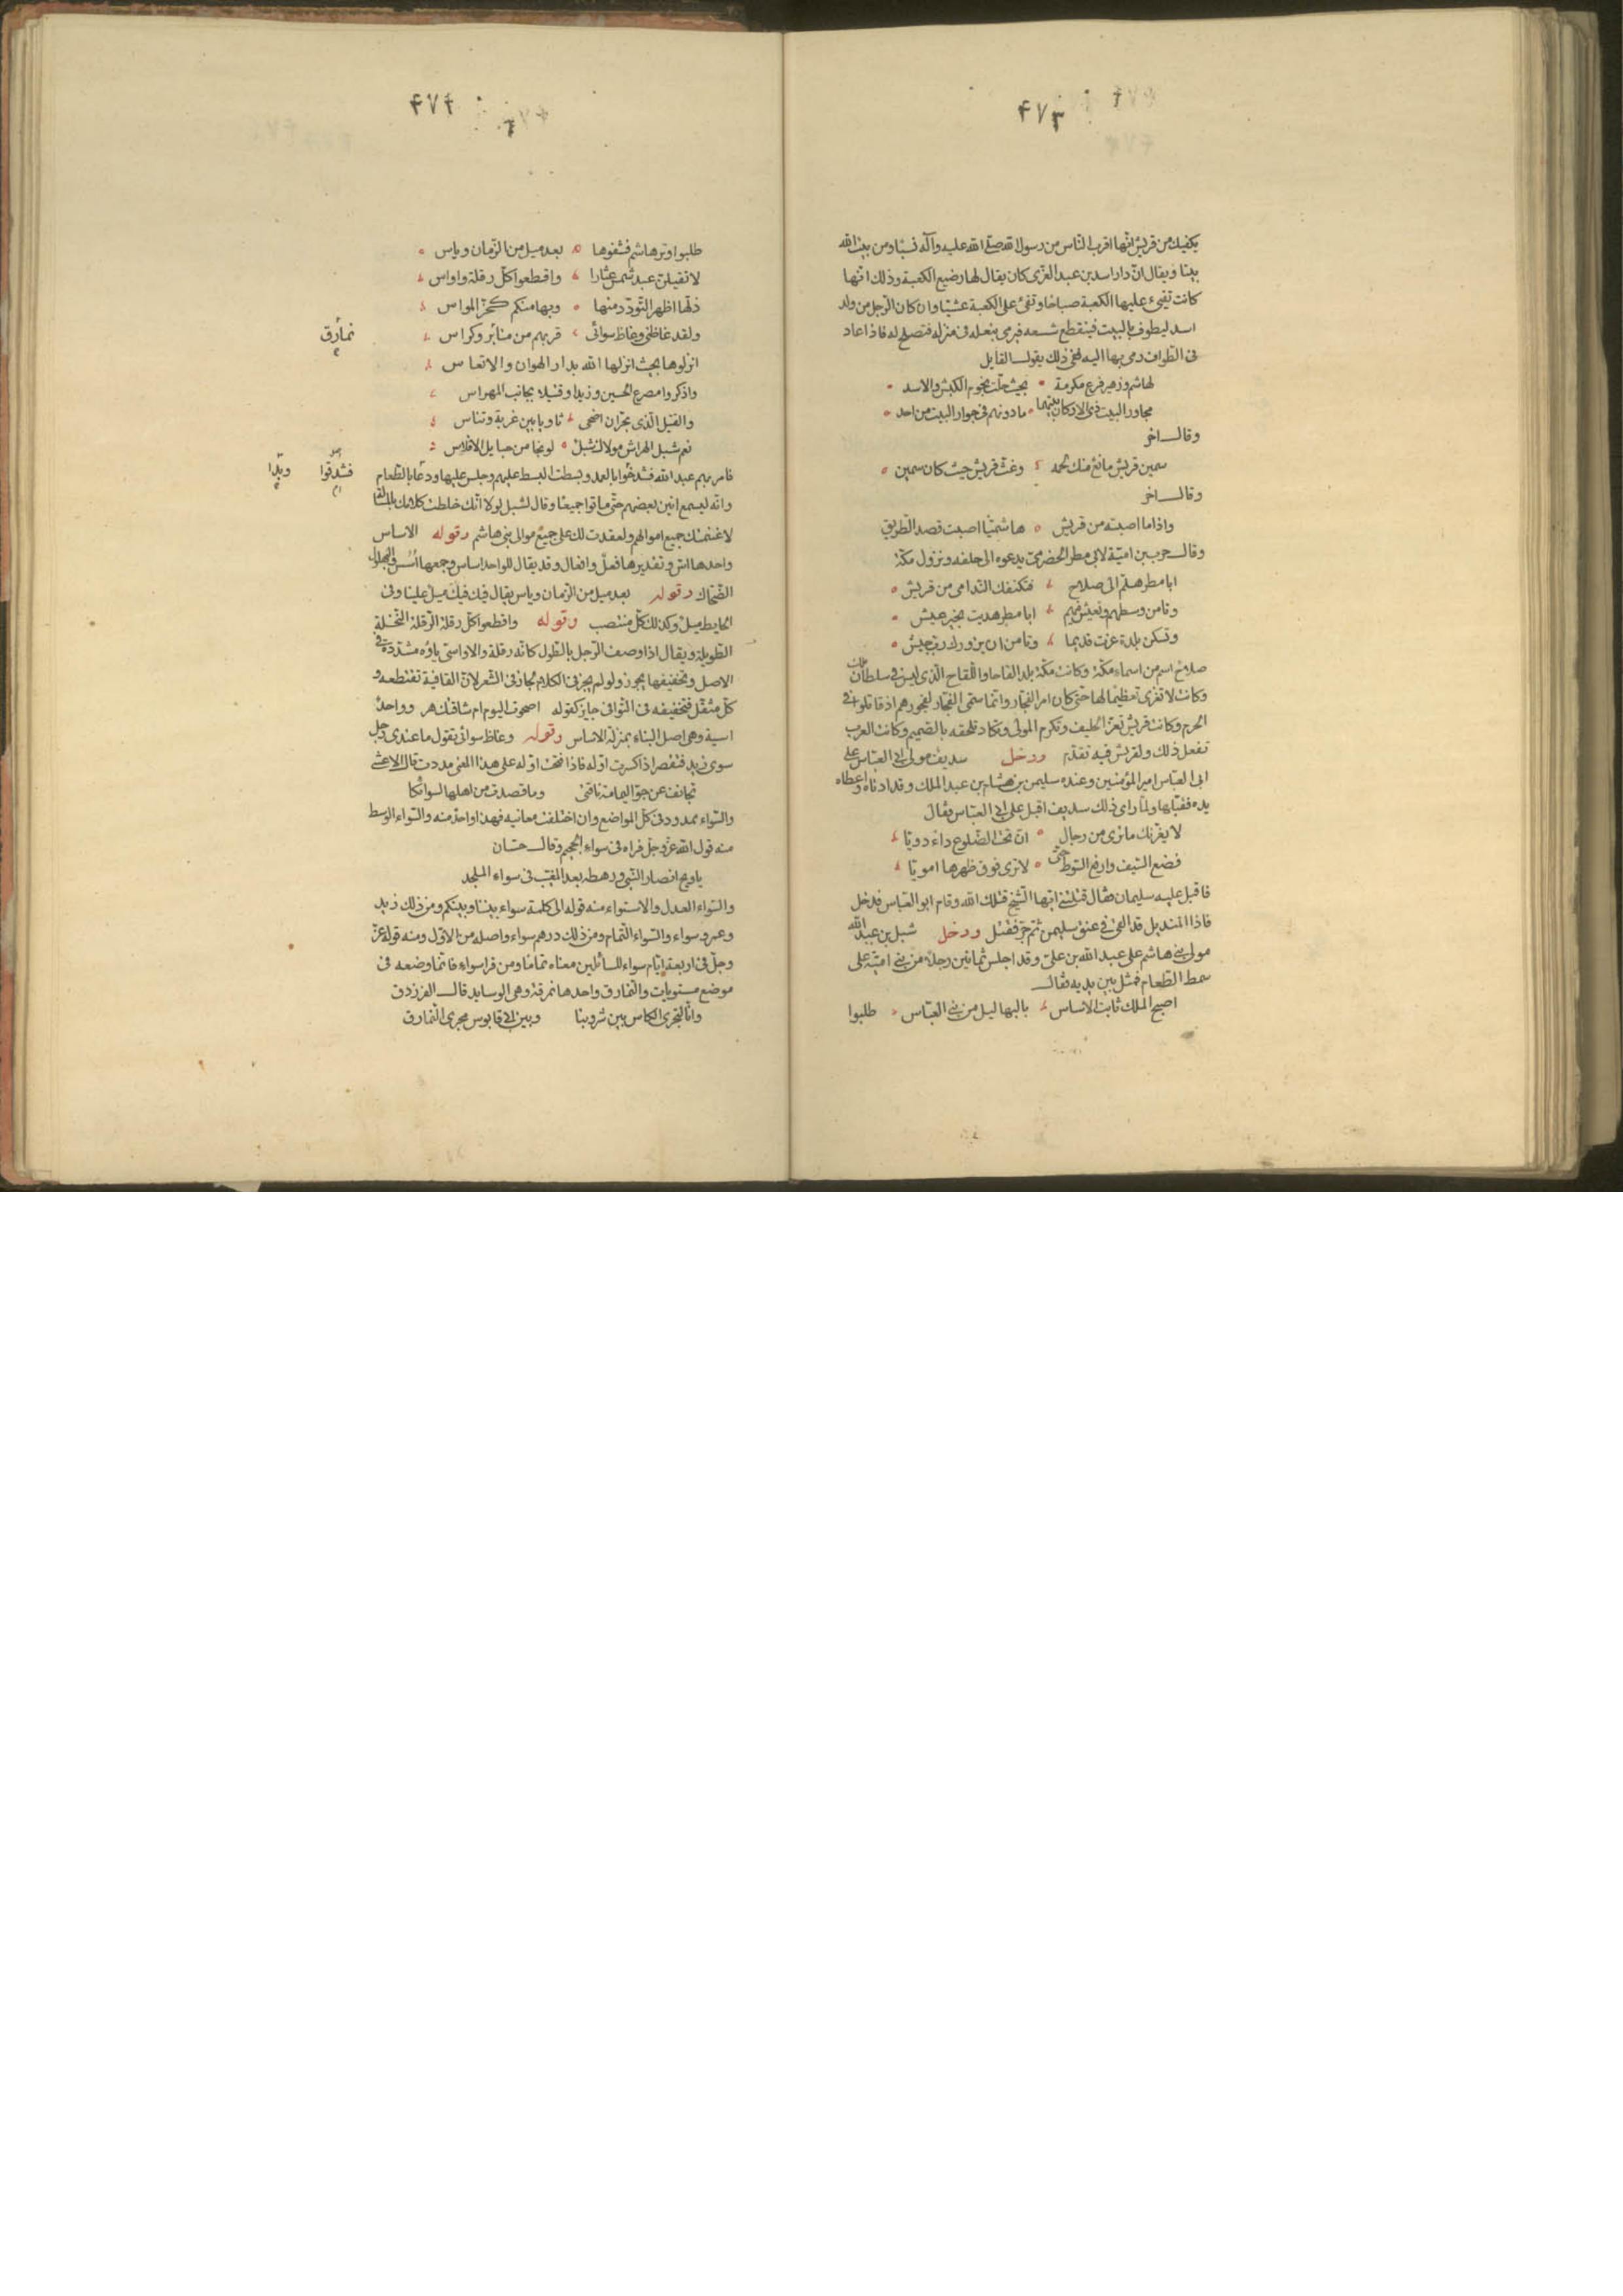 ۴۷۳
يكفيك من قريش انها اقرب الناس من رسول الله صلى الله عليه وآله نسبا ومن بيت الله
بيتا ويقال ان دار اسد بن عبد العزى كان يقال لها رضيع الكعبة وذلك انها
كانت تفيء عليها الكعبة صباحا وتفئ على الكعبة عشيا وان كان الرجل من ولد
اسد ليطوف بالبيت فينقطع شسعه فيرمى بنعله فى منزله فتصلح له فاذا عاد
فى الطواف رمى بها اليه ففى ذلك يقول القايل
لهاشم وزهير فرع مكرمة بحيث حلت نجوم الكبش والاسد
مجاور البيت ذى الاركان بيتهما ما دونهم فى جوار البيت من احد
وقال اخر
سمين قريش مانع منك لحمه وغث قريش حيث كان سمين
وقال اخر
واذا ما اصبته من قريش هاشميا اصبت قصد الطريق
وقال حرب بن امية لابى مطر الحضرمى يدعوه الى حلفه ونزول مكة
ابا مطر هلم الى صلاح فتكنفك الندامى من قريش
وتامن وسطهم وتعيش فيهم ابا مطر هديت بخير عيش
وتسكن بلدة عزت قديما وتامن ان يزورك رب جيش
صلاح اسم من اسماء مكة وكانت مكة بلدا لقاحا واللقاح الذى ليس فى سلطان
وكانت لا تغزى تعظيما لها حتى كان امر الفجار وانما سمى الفجار لفجورهم اذ قاتلوا فى
الحرم وكانت قريش تعز الحليف وتكرم المولى وتكاد تلحقه بالصميم وكانت العرب
تفعل ذلك ولقريش فيه تقدم ودخل سديف مولى ابى العباس على
ابى العباس امير المؤمنين وعنده سليمن بن هشام بن عبد الملك وقد ادناه واعطاه
يده فقبلها ولما راى ذلك سديف اقبل على ابى العباس فقال
لا يغرنك ما ترى من رجال ان تحت الضلوع داء دويا
فضع السيف وارفع السوط حتى لا ترى فوق ظهرها امويا
فاقبل عليه سليمان فقال قتلتنى ايها الشيخ قتلك الله وقام ابو العباس فدخل
فاذا المنديل قد القى فى عنق سليمن ثم جر فقتل ودخل شبل بن عبد الله
مولى بنى هاشم على عبد الله بن على وقد اجلس ثمانين رجلا من بنى امية على
سمط الطعام فمثل بين يديه فقال
اصبح الملك ثابت الاساس بالبهاليل من بنى العباس طلبوا
۴۷۴
طلبوا وتر هاشم فشفوها بعد ميل من الزمان وياس
لا تقيلن عبد شمس عثارا واقطعوا كل رقلة واواس
ذلها اظهر التودد منها وبها منكم كحز المواس
ولقد غاظنى وغاظ سوائى قربهم من منابر وكراس
نمارق
انزلوها بحيث انزلها الله بدار الهوان والاتعاس
واذكروا مصرع الحسين وزيدا وقتيلا بجانب المهراس
والقتيل الذى بحران اضحى ثاويا بين غربة وتناس
نعم شبل الهراش مولاك شبل لو نجا من حبايل الافلاس
فامر بهم عبد الله فشدخوا بالعمد وبسطت البسط عليهم وجلس عليها ودعا بالطعام
فشدقوا
وانه ليسمع انين بعضهم حتى ماتوا جميعا وقال لشبل لولا انك خلطت كلامك بالمسئلة
لاغنمتك جميع اموالهم ولعقدت لك على جميع موالى بنى هاشم وقوله الاساس
واحدها اس وتقديرها فعل وافعال وقد يقال للواحد اساس وجمعها اسس والبهلول
الضحاك وقوله بعد ميل من الزمان وياس يقال فيك ميل علينا وفى
الحايط ميل وكذلك كل منتصب وقوله واقطعوا كل رقلة الرقلة النخلة
الطويلة ويقال اذا وصف الرجل بالطول كانه رقلة والاواسى ياؤه مشددة فى
الاصل وتخفيفها يجوز ولو لم يجز فى الكلام لجاز فى الشعر لان القافية تقتطعه و
كل مثقل فتخفيفه فى القوافى جايز كقوله اصحوت اليوم ام شاقتك هر وواحد
اسية وهى اصل البناء بمنزلة الاساس وقوله وغاظ سوائى تقول ما عندى رجل
سوى زيد فتقصر اذا كسرت اوله فاذا فتحت اوله على هذا المعنى مددت قال الاعشى
تجانف عن جو اليمامة ناقتى وما قصدت من اهلها لسوائكا
والسواء ممدود فى كل المواضع وان اختلفت معانيه فهذا واحد منه والسواء الوسط
منه قول الله عز وجل فراه فى سواء الجحيم وقال حسان
يا ويح انصار النبى ورهطه بعد المغيب فى سواء الملحد
والسواء العدل والاستواء منه قوله الى كلمة سواء بيننا وبينكم ومن ذلك زيد
وعمرو سواء والسواء التمام ومن ذلك درهم سواء واصله من الاول ومنه قوله عز
وجل فى اربعة ايام سواء للسائلين معناه تماما ومن قرا سواء فانما وضعه فى
موضع مستويات والنمارق واحدها نمرقة وهى الوسايد قال الفرزدق
وانا لتجرى الكاس بين شروبنا وبين ابى قابوس مجرى النمارق